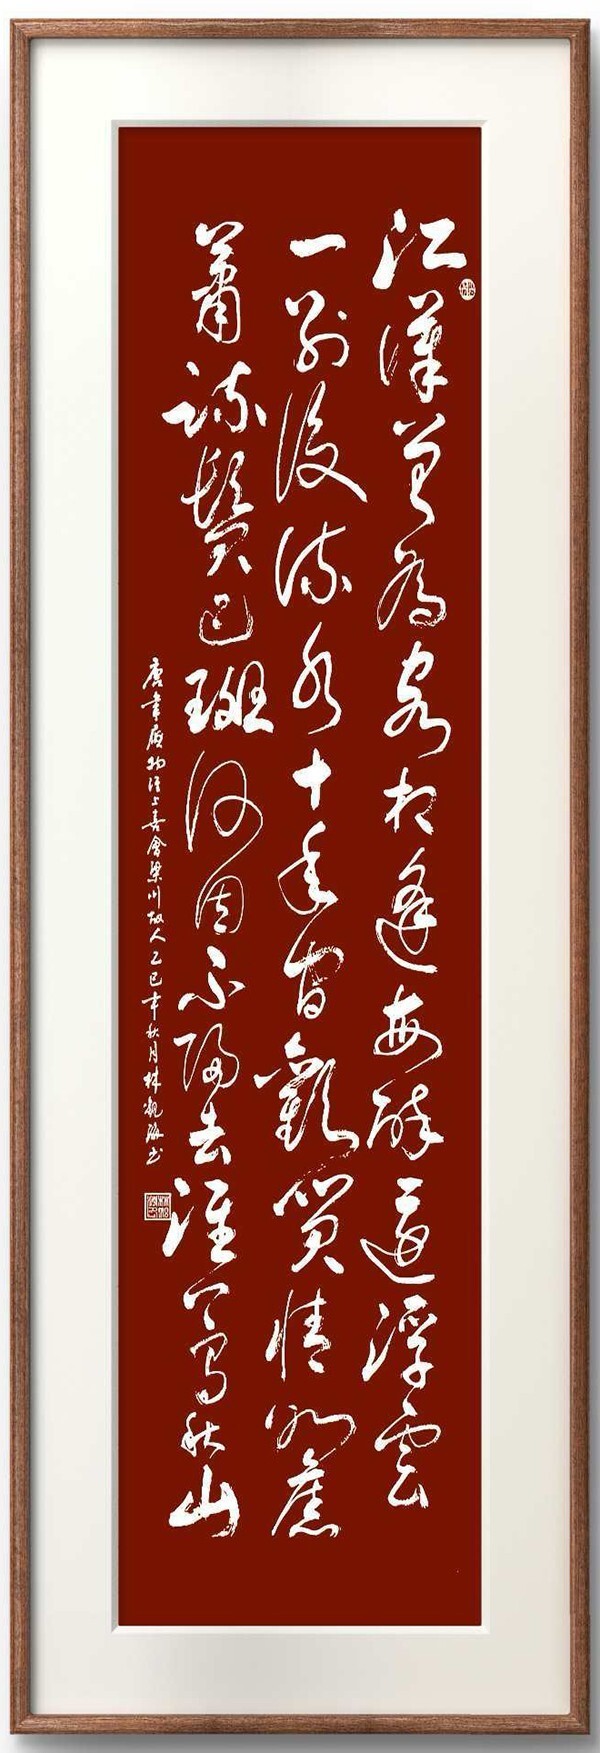 江漢曾為客相逢每醉還浮雲
一別後流水十年間歡笑情如舊
蕭疏鬢已斑何因不歸去淮上有秋山
唐韋應物淮上喜會梁川故人乙巳年秋月林海书